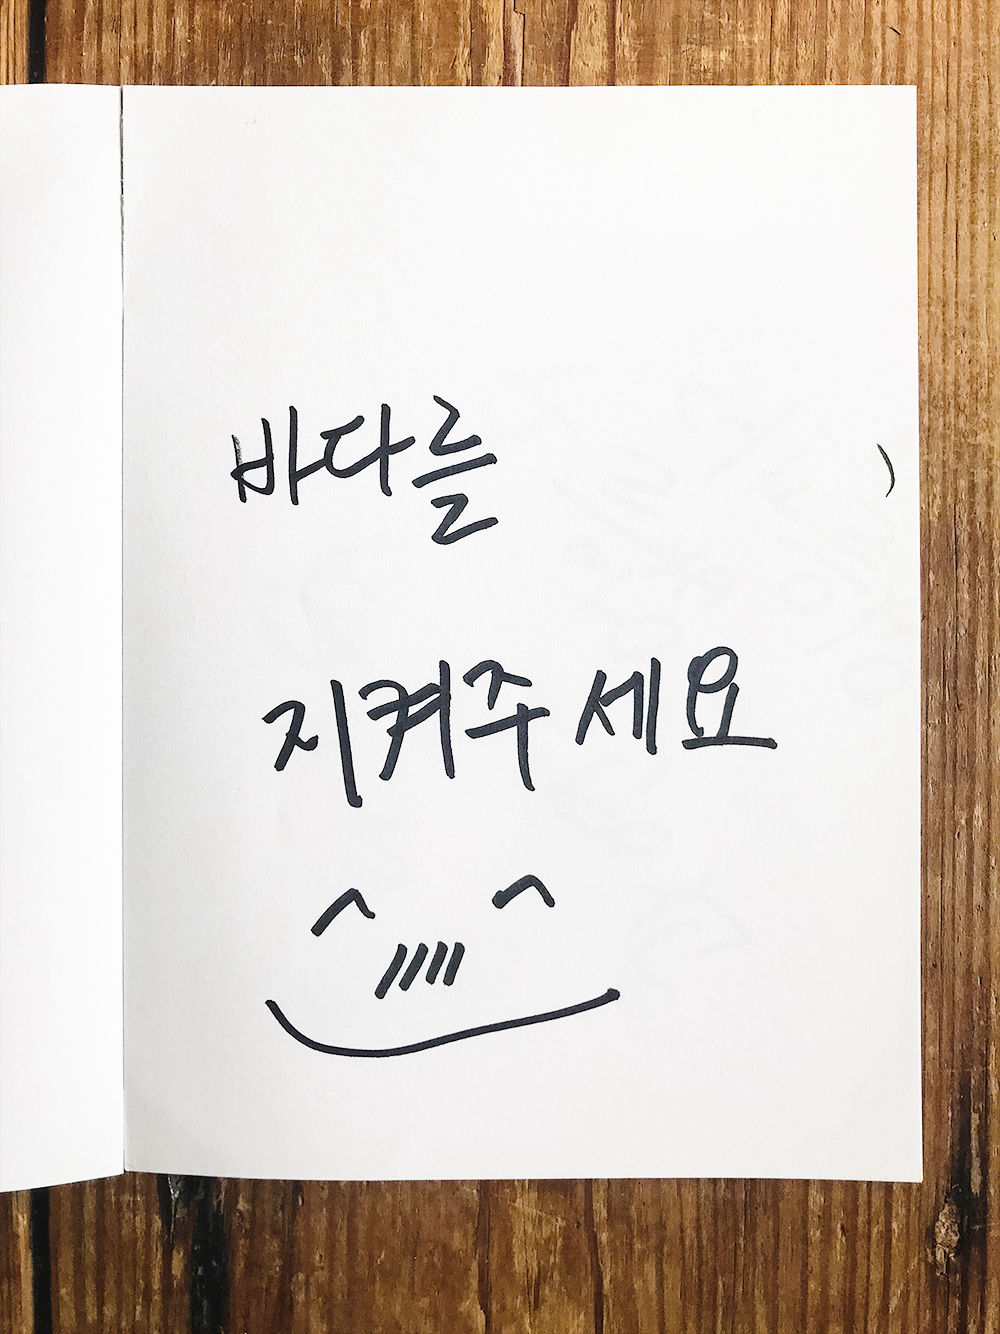 바다를
지켜주세요